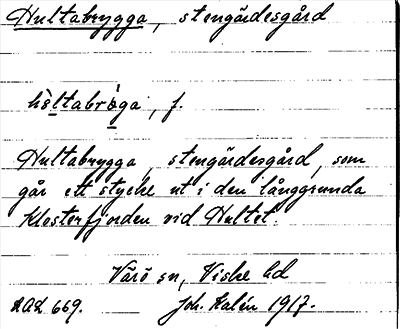 Hultabrygga, stengärdesgård
hòltabròga, f.
Hultabrygga, stengärdesgård, som
går ett stycke ut i den långgrunda
Klosterfjorden vid Hultet.
Värö sn, Viske hd
AAL 669. Joh. Kalén 1917.